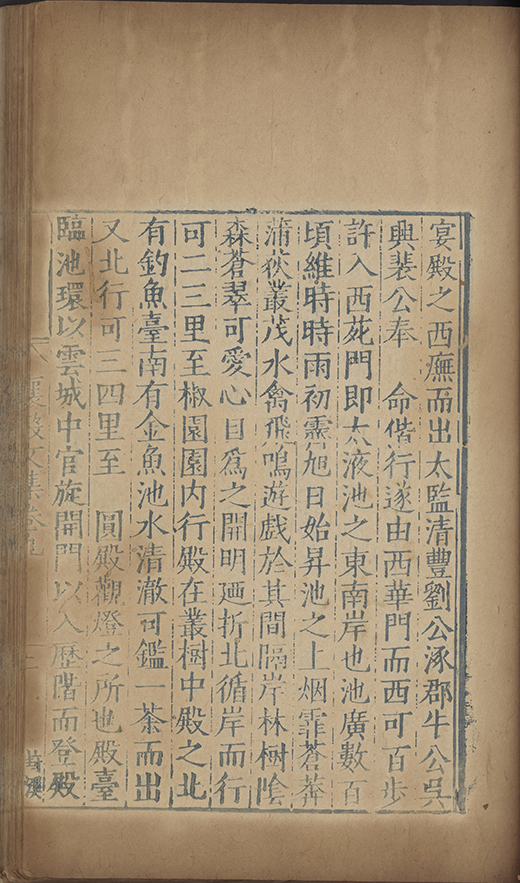 宴殿之西廡而出太監清豐劉公涿郡牛公吳
興裴公奉 命偕行遂由西華門而西可百步
許入西苑門即太液池之東南岸也池廣數百
頃維時時雨初霽旭日始昇池之上烟霏蒼莽
蒲荻叢茂水禽飛鳴遊戲於其間隔岸林樹陰
森蒼翠可愛心目爲之開明廼折北循岸而行
可二三里至椒園園内行殿在叢樹中殿之北
有釣魚臺南有金魚池水清澈可鑑一茶而出
又北行可三四里至 圓殿觀燈之所也殿臺
臨池環以雲城中官旋開門以入歷階而登殿
襄毅文集卷